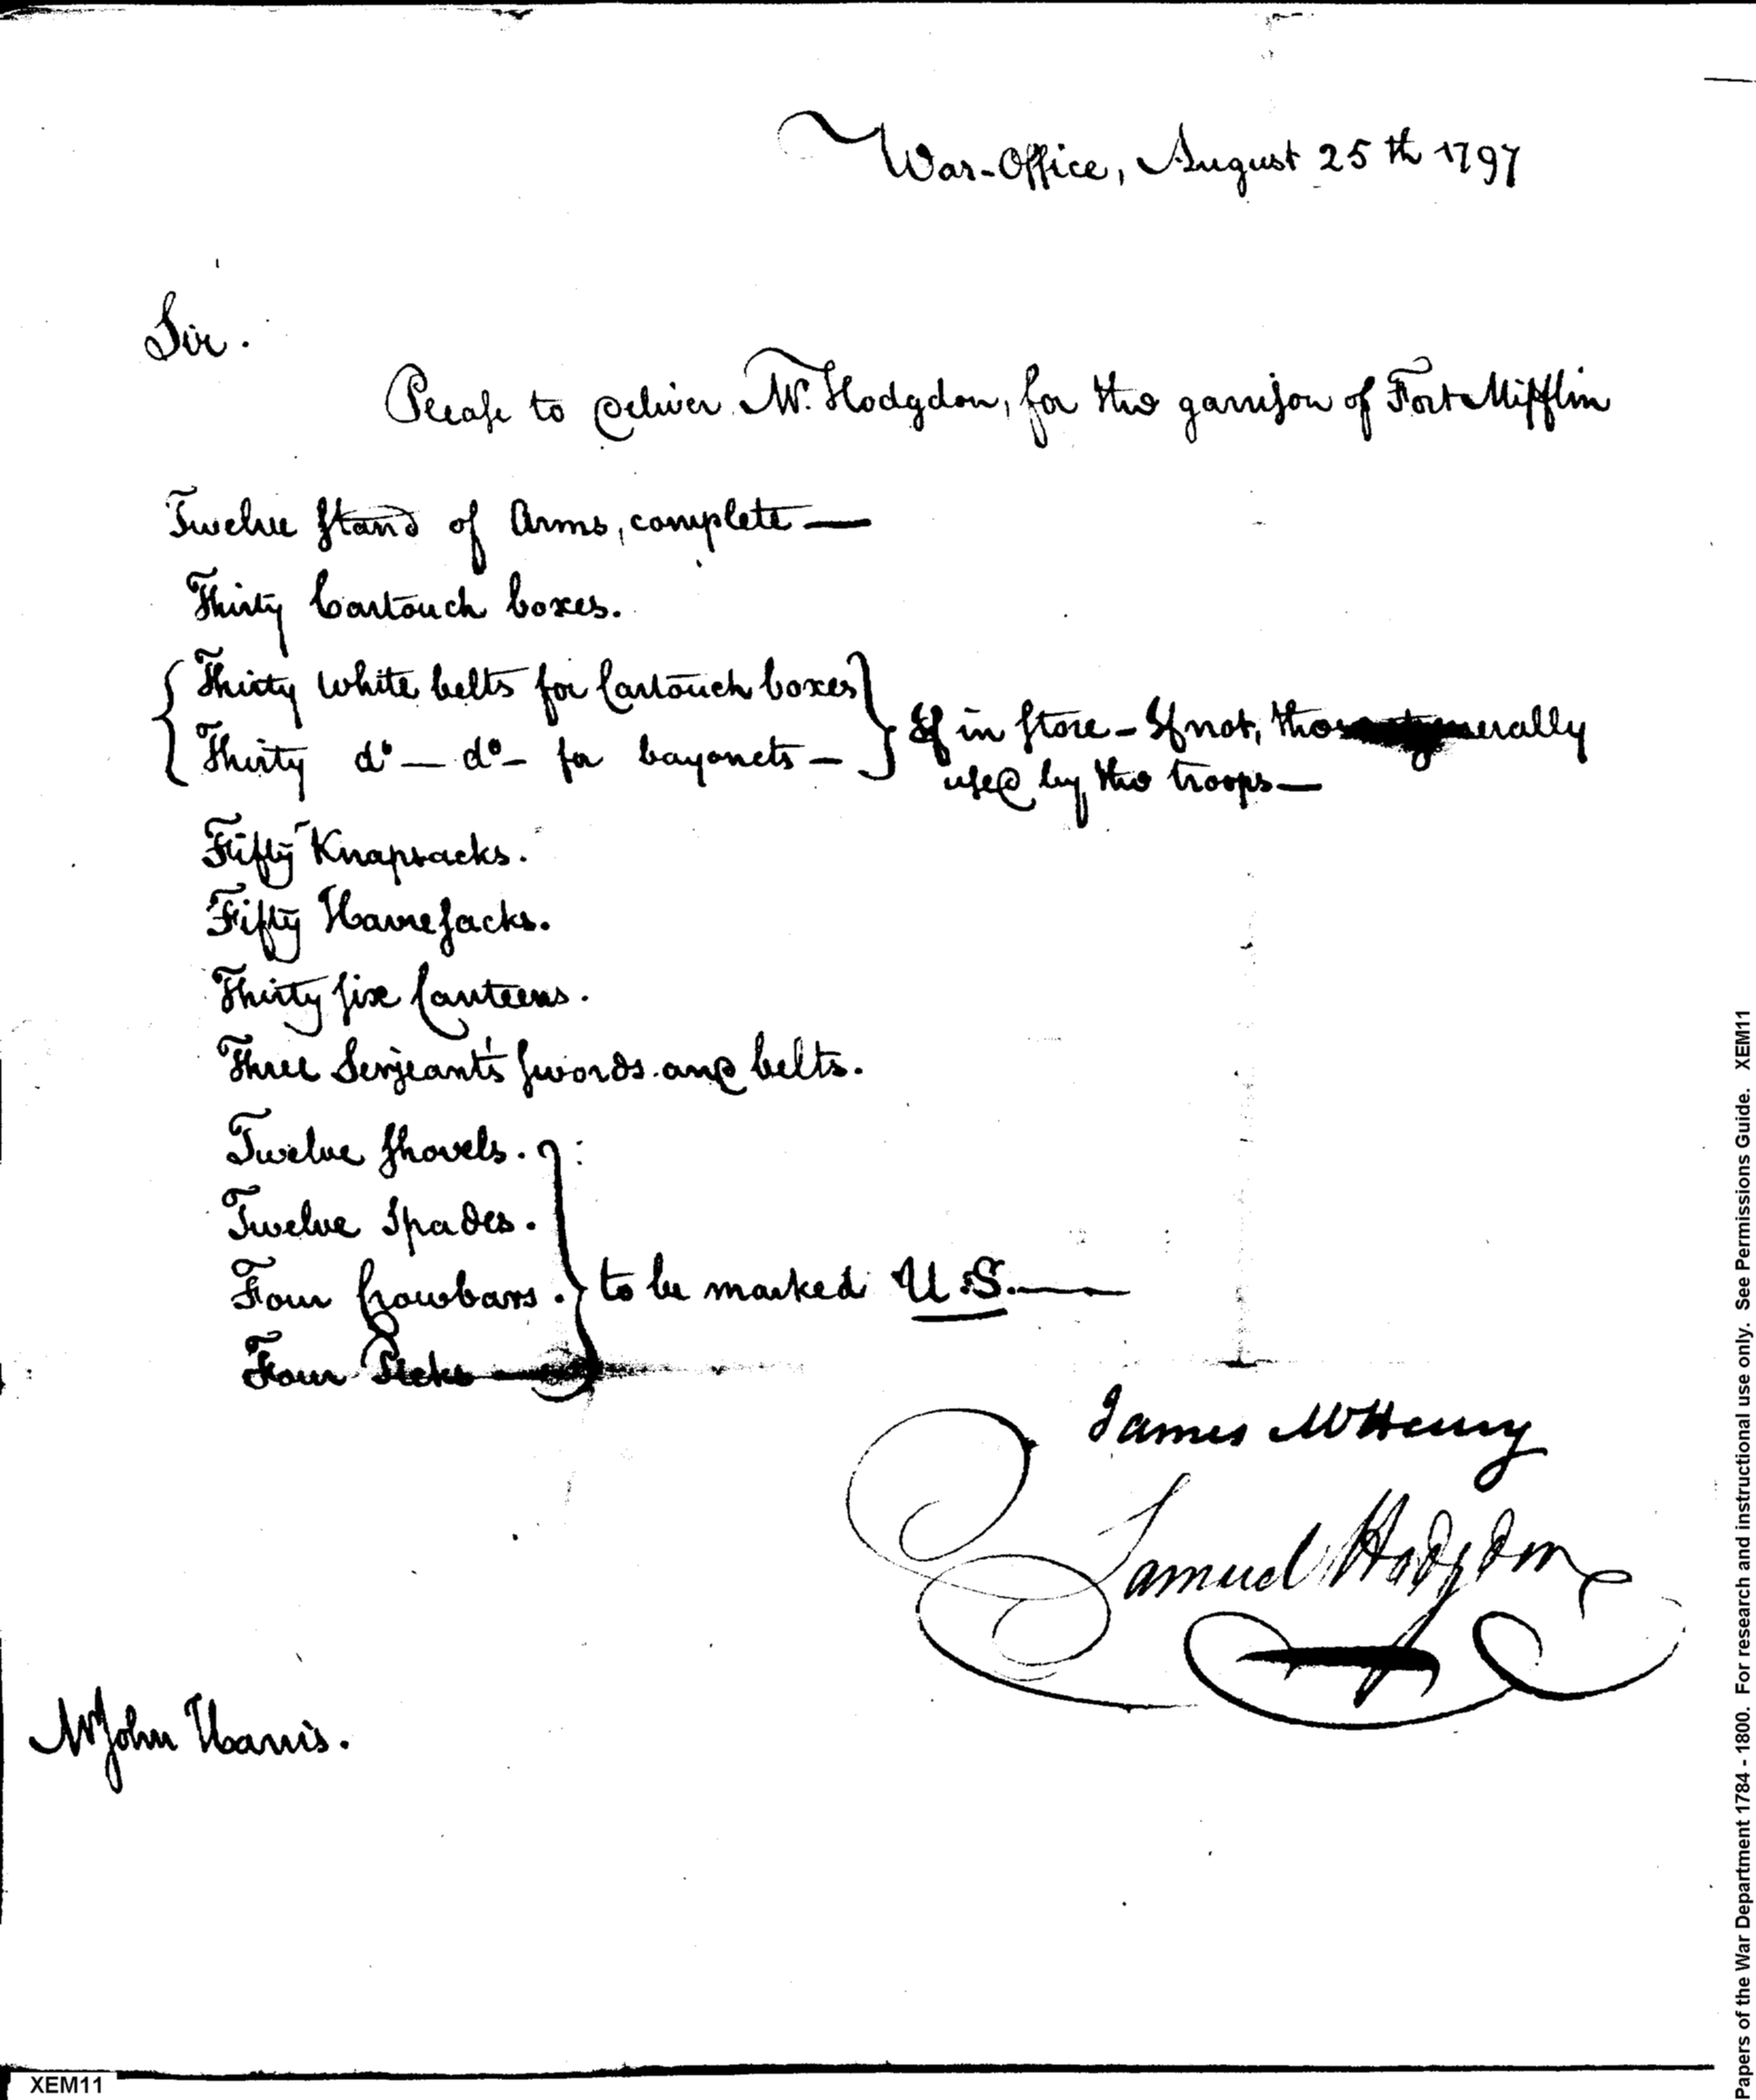 War-Office, August 25th 1797
Sir.
Please to deliver Mr. Hodgdon, for the garrison of Fort Mifflin
Twelve Stand of Arms, complete —
Thirty Cartouch boxes.
Thirty white belts for Cartouch boxes
Thirty do — do – for bayonets —
If in Store – If not, those generally
used by the troops —
Fifty Knapsacks.
Fifty Haversacks.
Thirty six Canteens.
Three Serjeant's Swords and belts.
Twelve Shovels.
Twelve Spades.
Four Crowbars.
to be marked U.S. —
Four Picks —
James McHenry
Samuel Hodgdon
Mr John Harris.
XEM11
Papers of the War Department 1784 - 1800. For research and instructional use only. See Permissions Guide. XEM11